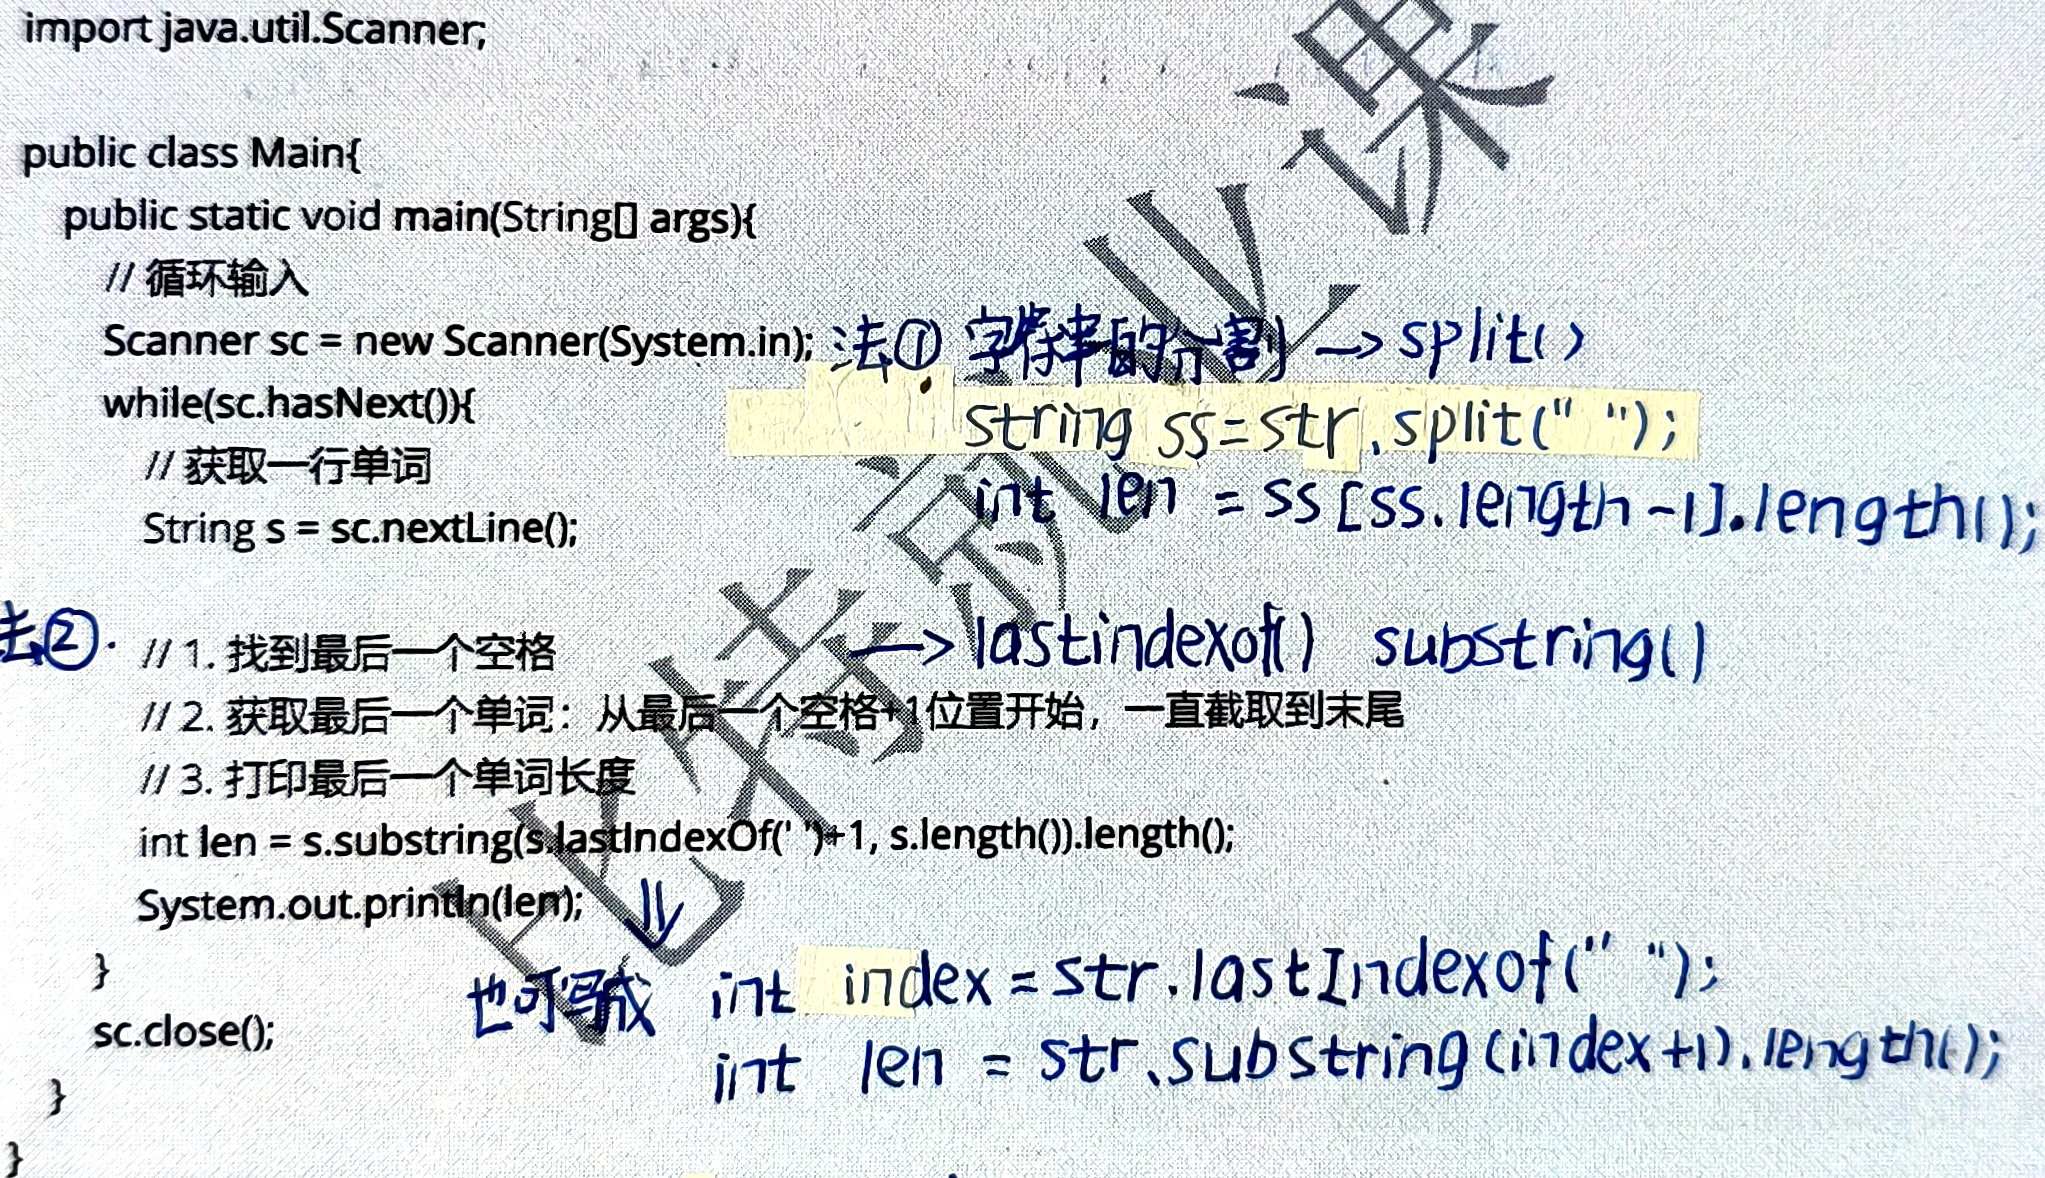 import java.util.Scanner;
public class Main{
public static void main(String[] args){
// 循环输入
Scanner sc = new Scanner(System.in); 法① 字符串的分割 → split()
while(sc.hasNext()){
string ss=str.split(" ");
// 获取一行单词
int len = ss[ss.length-1].length();
String s = sc.nextLine();
法②. // 1. 找到最后一个空格 → lastindexof() substring()
// 2. 获取最后一个单词：从最后一个空格+1位置开始，一直截取到末尾
// 3. 打印最后一个单词长度
int len = s.substring(s.lastIndexOf(' ')+1, s.length()).length();
System.out.println(len);
}
也可写成 int index = str.lastIndexof(" ");
sc.close();
int len = str.substring(index+1).length();
}
}
比特就业课